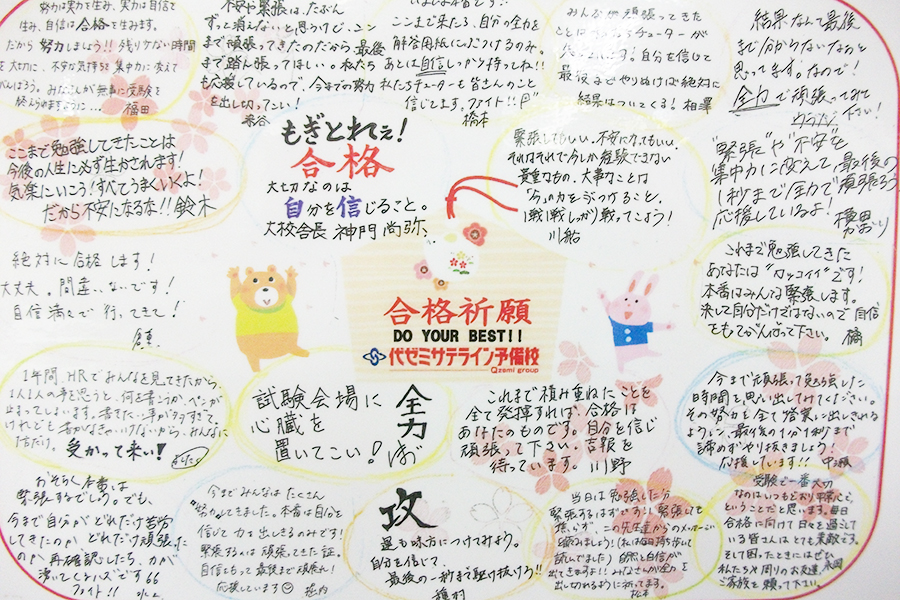 努力は実力を生み、実力は自信で
生み、自信は合格を生みます。
だから 努力しましょう!! 残り少ない時間
を大切に、不安な気持ちを集中力に変えて
終えられますように… 福田
不安や緊張は、たぶん
ずっと消えないと思うけど、ここ
まで頑張ってきたのだから最後
まで踏ん張ってほしい。私たち
も応援しているので、今までの努力
を出し切ってこい!
ここまで来たら、自分の全力を
解答用紙にぶつけるのみ。
あとは自信しっかり持ってね!!
私たちチューターも皆さんのこと
信じてます。ファイト!!
橋本
みんなが頑張ってきた
ことはチューターが
自分を信じて
最後までやりぬけば絶対に
結果はついてくる! 相澤
結果なんて最後
まで分からないものだと
思ってます。なので!
全力で頑張ってみて
ください!
ここまで勉強してきたことは
今後の人生に必ず生かされます!
気楽にいこう!すべてうまくいくよ!
だから不安になるな!! 鈴木
もぎとれぇ!
合格
大切なのは
自分を信じること。
大校舎長 神門 尚弥
緊張してもいい、不安になってもいい、
それはそれで今しか経験できない
貴重なもの。大事なことは
「今」の力をぶつけること。
1戦1戦しっかり戦ってこよう!
川船
"緊張"や"不安"を
集中力に変えて、最後の
1秒まで全力で頑張ろう
応援しているよ!
絶対に合格します!
大丈夫。間違いないです!
自信満々で行ってきて!
合格祈願
DO YOUR BEST!!
代ゼミサテライン予備校
Qzemi group
これまで勉強してきた
あなたは"カッコイイ"です!
本番はみんな緊張します。
決して自分だけではないので自信
をもってがんばって下さい。 橘
1年間、HRでみんなを見てきたから、
1人1人の事を思うと、何を書こうか、ペンが
止まってしまいます。書きたい事が多すぎて。
けれども書かなきゃいけないから、みんなに
1言だけ。 受かって来い!
試験会場に
心臓を
置いてこい!
全力
これまで積み重ねたことを
全て発揮すれば、合格は
あなたのものです。自分を信じ
頑張って下さい。吉報を
待っています。 川野
今まで頑張って勉強した
時間を思い出してみてください。
その努力を全て答案に出しきれる
ように、最後の1分1秒まで
諦めずやり抜きましょう!
応援しています!!
おそらく本番は
緊張するでしょう。でも、
今まで自分がどれだけ苦労
してきたのか どれだけ頑張った
のか 再確認したら、力が
湧いてくるハズです
ファイト!!
今までみんなは たくさん
"努力"してきました。本番は自分を
信じて 力を出しきるのみです!
緊張するのは頑張ってきた証。
自信をもって最後まで頑張れ!
応援しています 堀内
攻
運も味方につけましょう。
自分を信じて、
最後の一秒まで駆け抜けろ!!
当日は勉強した分
緊張するはずです!!緊張しても
焦らず、この先生達からのメッセージ
読みましょう!(私は毎日持ち歩いて
読んでました) 自然と自信が
出てきますよ!!みなさんが全力を
出し切れるように祈ってます。
松本
受験で一番大切
なのはいつもどおり平常心で、
ということだと思います。毎日
合格に向けて日々を過ごして
いる皆さんはとても素敵です。
そして困ったときにはぜひ
私たちや周りのお友達、
ご家族を頼って下さい。
永田